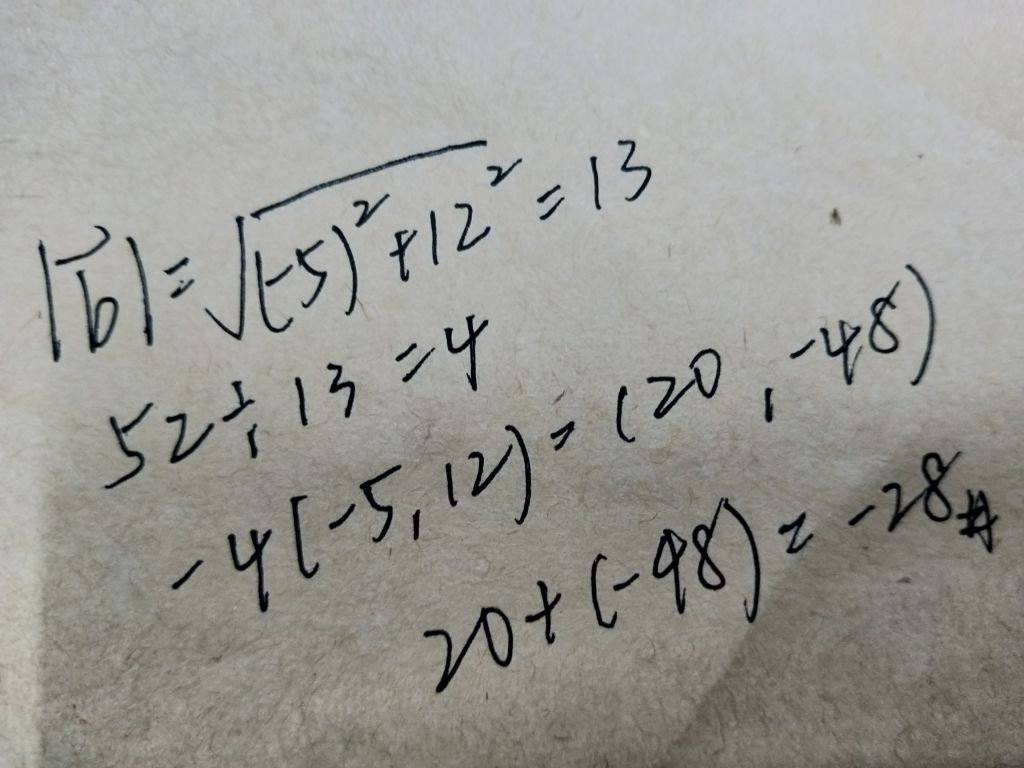 |b⃗| = √(-5)² + 12² = 13
52 ÷ 13 = 4
-4(-5, 12) = (20, -48)
20 + (-48) = -28#